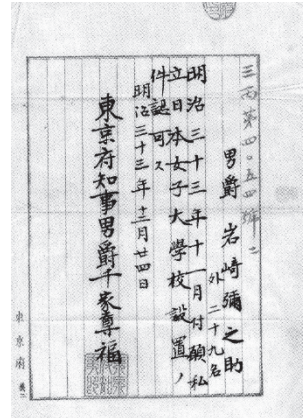 三丙第四〇五四號ノ二
男爵 岩崎彌之助
外二十九名
明治三十三年十一月付願私
立日本女子大學校設置ノ
件認可ス
明治三十三年十二月廿四日
東京府知事男爵千家尊福
東京府